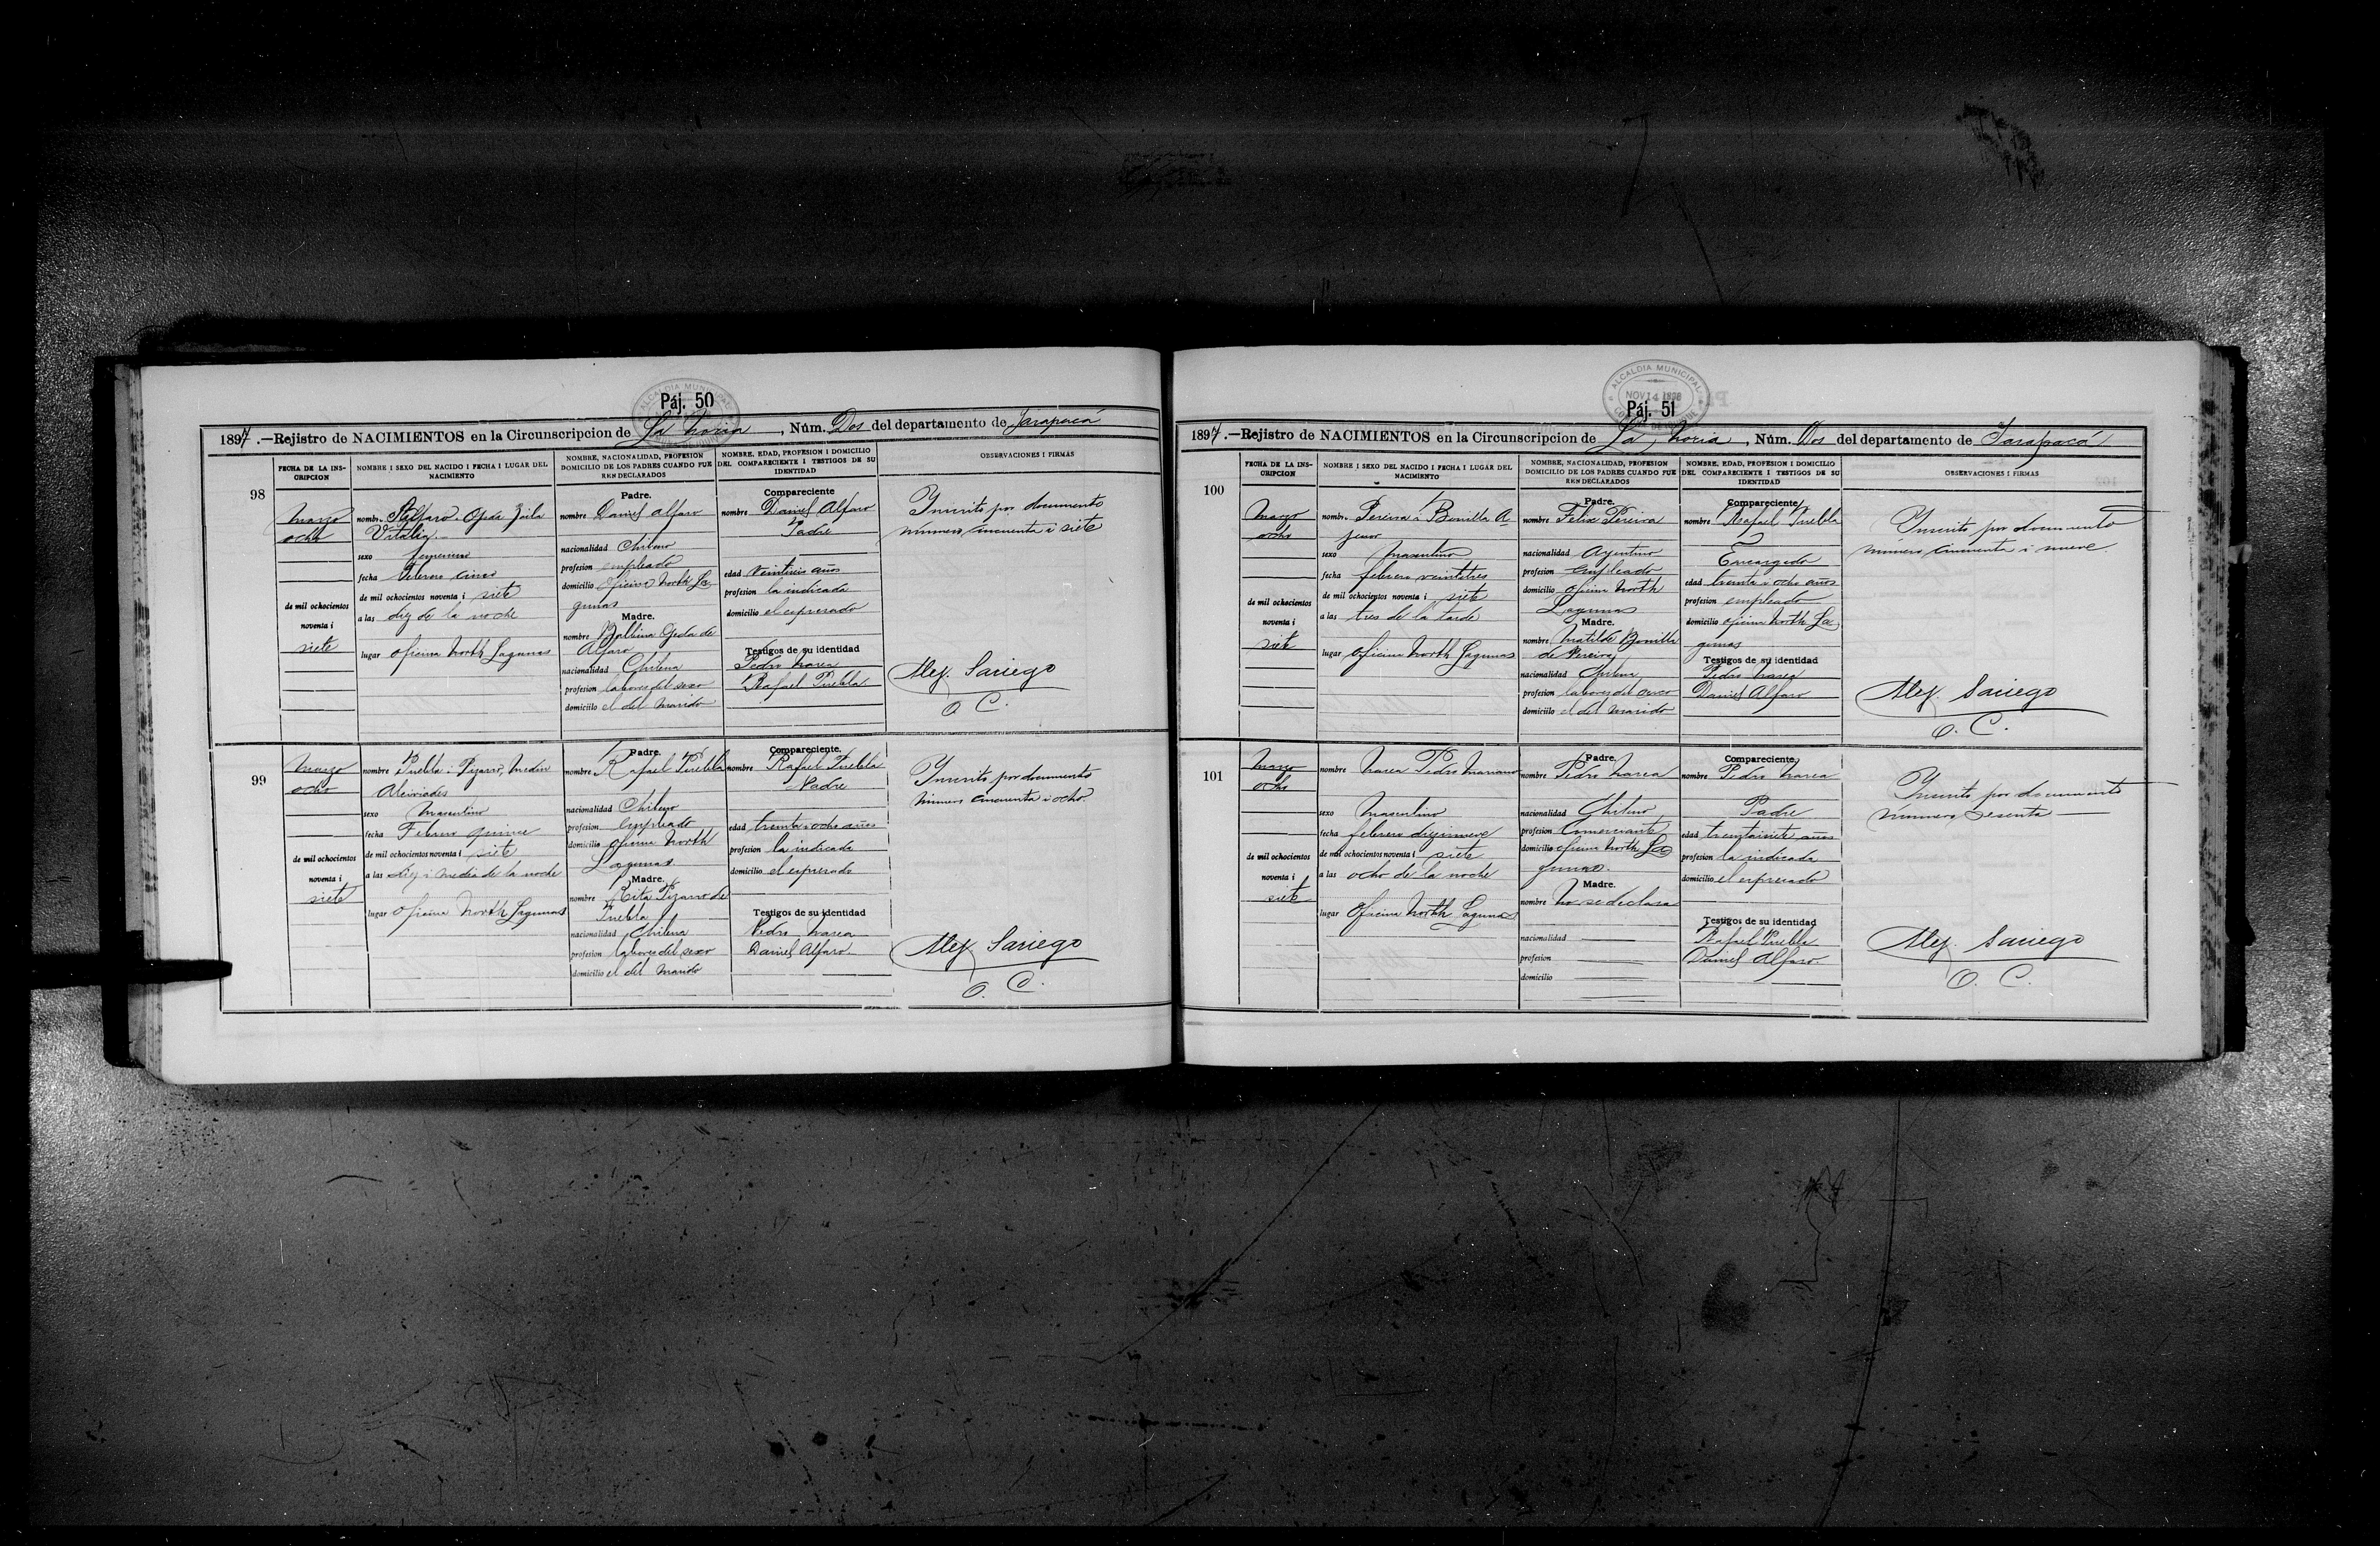 ALCALDIA MUNICIPAL
Páj. 50
1897.—Rejistro de NACIMIENTOS en la Circunscripcion de La Noria, Núm. Dos del departamento de Tarapacá
FECHA DE LA INSCRIPCION
NOMBRE I SEXO DEL NACIDO I FECHA I LUGAR DEL NACIMIENTO
NOMBRE, NACIONALIDAD, PROFESION DOMICILIO DE LOS PADRES CUANDO FUEREN DECLARADOS
NOMBRE, EDAD, PROFESION I DOMICILIO DEL COMPARECIENTE I TESTIGOS DE SU IDENTIDAD
OBSERVACIONES I FIRMAS
98
Marzo
ocho
de mil ochocientos
noventa i
siete
nombre Alfaro Ojeda Zoila
Vitalia
sexo femenino
fecha Febrero cinco
de mil ochocientos noventa i siete
a las diez de la noche
lugar oficina North Lagunas
Padre.
nombre Daniel Alfaro
nacionalidad Chileno
profesion empleado
domicilio oficina North La
gunas
Madre.
nombre Balbina Ojeda de
Alfaro
nacionalidad Chilena
profesion labores del sexo
domicilio el del marido
Compareciente
nombre Daniel Alfaro
Padre
edad años
profesion la indicada
domicilio el espresado
Testigos de su identidad
Pedro Narea
Rafael Puebla
Inscrito por documento
número cincuenta i siete
Alej. Sariego
O. C.
99
Marzo
ocho
de mil ochocientos
noventa i
siete
nombre Puebla i Pizarro,
Alciviades
sexo Masculino
fecha Febrero quince
de mil ochocientos noventa i siete
a las diez i media de la noche
lugar oficina North Lagunas
Padre.
nombre Rafael Puebla
nacionalidad Chileno
profesion Empleado
domicilio oficina North
Lagunas
Madre.
nombre Rita Pizarro de
Puebla
nacionalidad Chilena
profesion labores del sexo
domicilio el del marido
Compareciente.
nombre Rafael Puebla
Padre
edad treinta i ocho años
profesion la indicada
domicilio el espresado
Testigos de su identidad
Pedro Narea
Daniel Alfaro
Inscrito por documento
número cincuenta i ocho.
Alej. Sariego
O. C.
ALCALDIA MUNICIPAL
NOV 14 1898
Páj. 51
1897.—Rejistro de NACIMIENTOS en la Circunscripcion de La Noria, Núm. Dos del departamento de Tarapacá
FECHA DE LA INSCRIPCION
NOMBRE I SEXO DEL NACIDO I FECHA I LUGAR DEL NACIMIENTO
NOMBRE, NACIONALIDAD, PROFESION DOMICILIO DE LOS PADRES CUANDO FUEREN DECLARADOS
NOMBRE, EDAD, PROFESION I DOMICILIO DEL COMPARECIENTE I TESTIGOS DE SU IDENTIDAD
OBSERVACIONES I FIRMAS
100
Marzo
ocho
de mil ochocientos
noventa i
siete
nombre Pereira i Bonilla A
jenor
sexo Masculino
fecha febrero veintitres
de mil ochocientos noventa i siete
a las tres de la tarde
lugar oficina North Lagunas
Padre.
nombre Felix Pereira
nacionalidad Arjentino
profesion Empleado
domicilio oficina North
Lagunas
Madre.
nombre Matilde Bonilla
de Pereira
nacionalidad Chilena
profesion labores del sexo
domicilio el del marido
Compareciente
nombre Rafael Puebla
Encargado
edad treinta i ocho años
profesion empleado
domicilio oficina North La
gunas
Testigos de su identidad
Pedro Narea
Daniel Alfaro
Inscrito por documento
número cincuenta i nueve.
Alej. Sariego
O. C.
101
Marzo
ocho
de mil ochocientos
noventa i
siete
nombre Narea Pedro Mariano
sexo Masculino
fecha febrero diezinueve
de mil ochocientos noventa i siete
a las ocho de la noche
lugar Oficina North Lagunas
Padre.
nombre Pedro Narea
nacionalidad Chileno
profesion Comerciante
domicilio oficina North La
gunas.
Madre.
nombre No se declara
nacionalidad
profesion
domicilio
Compareciente
nombre Pedro Narea
Padre
edad treintaisiete años
profesion la indicada
domicilio el espresado
Testigos de su identidad
Rafael Puebla
Daniel Alfaro
Inscrito por documento
número sesenta
Alej. Sariego
O. C.